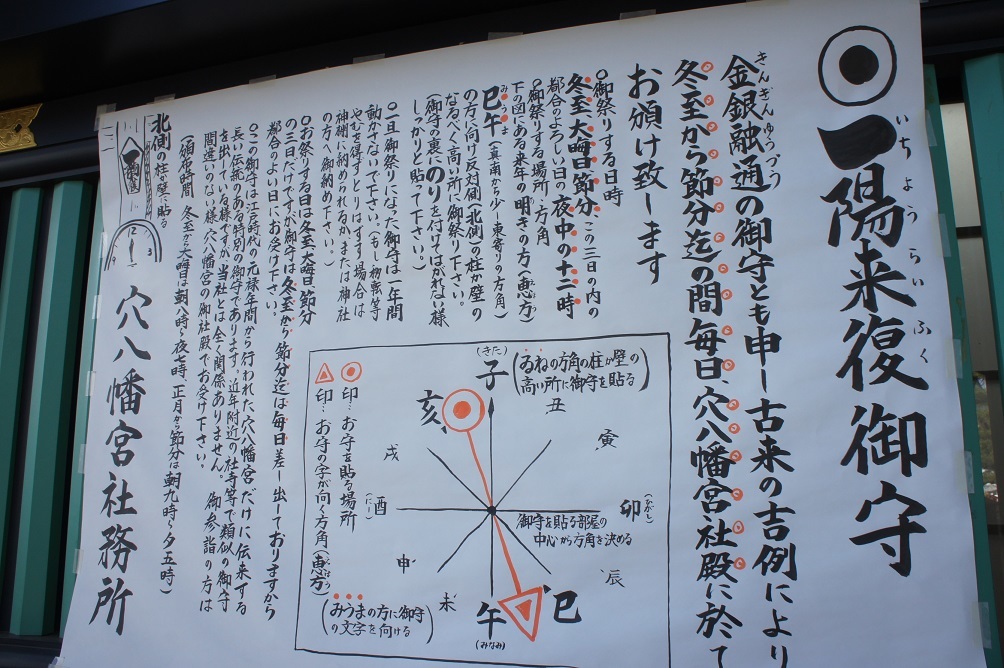 一陽来復御守
いちようらいふく
金銀融通の御守とも申し古来の吉例により
きんぎんゆうづう
冬至から節分迄の間毎日、穴八幡宮社殿に於て
お頒け致します
○御祭りする日時
冬至大晦日節分、この三日の内の
都合のよろしい日の夜中の十二時
○御祭りする場所・方角
下の図にある来年の明きの方(恵方)
巳午(真南から少し東寄りの方角)
みうま
の方に向け反対側(北側)の柱か壁の
なるべく高い所に御祭り下さい。
(御守の裏にのりを付けてはがれない様
しっかりと貼って下さい。)
○一旦御祭りになった御守は一年間
動かさないで下さい。(もし物転等
やむを得ずとりはずす場合は
神棚に納められるかまたは神社
の方へ御納め下さい。)
○お祭りする日は冬至大晦日節分
の三日だけですが御守は冬至から節分迄は毎日差し出しておりますから
都合のよい日にお受け下さい。
○この御守は江戸時代の元禄年間から行われた穴八幡宮だけに伝来する
長い伝統のある特別の御守であります。近年附近の社寺等で類似の御守
を出している様ですが、当社とは全く関係ありません。
間違いのない様、穴八幡宮の御社殿でお受け下さい。 御参詣の方は
(頒布時間 冬至から大晦日は朝八時から夜七時、正月から節分は朝九時から夕五時)
北側の柱か壁に貼る
12
3
9
穴八幡宮社務所
(きた)
子
(ゐねの方角の柱か壁の
高い所に御守を貼る)
丑
寅
卯
(ひがし)
辰
巳
午
(みなみ)
未
申
酉
(にし)
戌
亥
御守を貼る部屋の
中心から方角を決める
(みうまの方に御守
の文字を向ける)
印…お守を貼る場所
印…お守の字が向く方角(恵方)